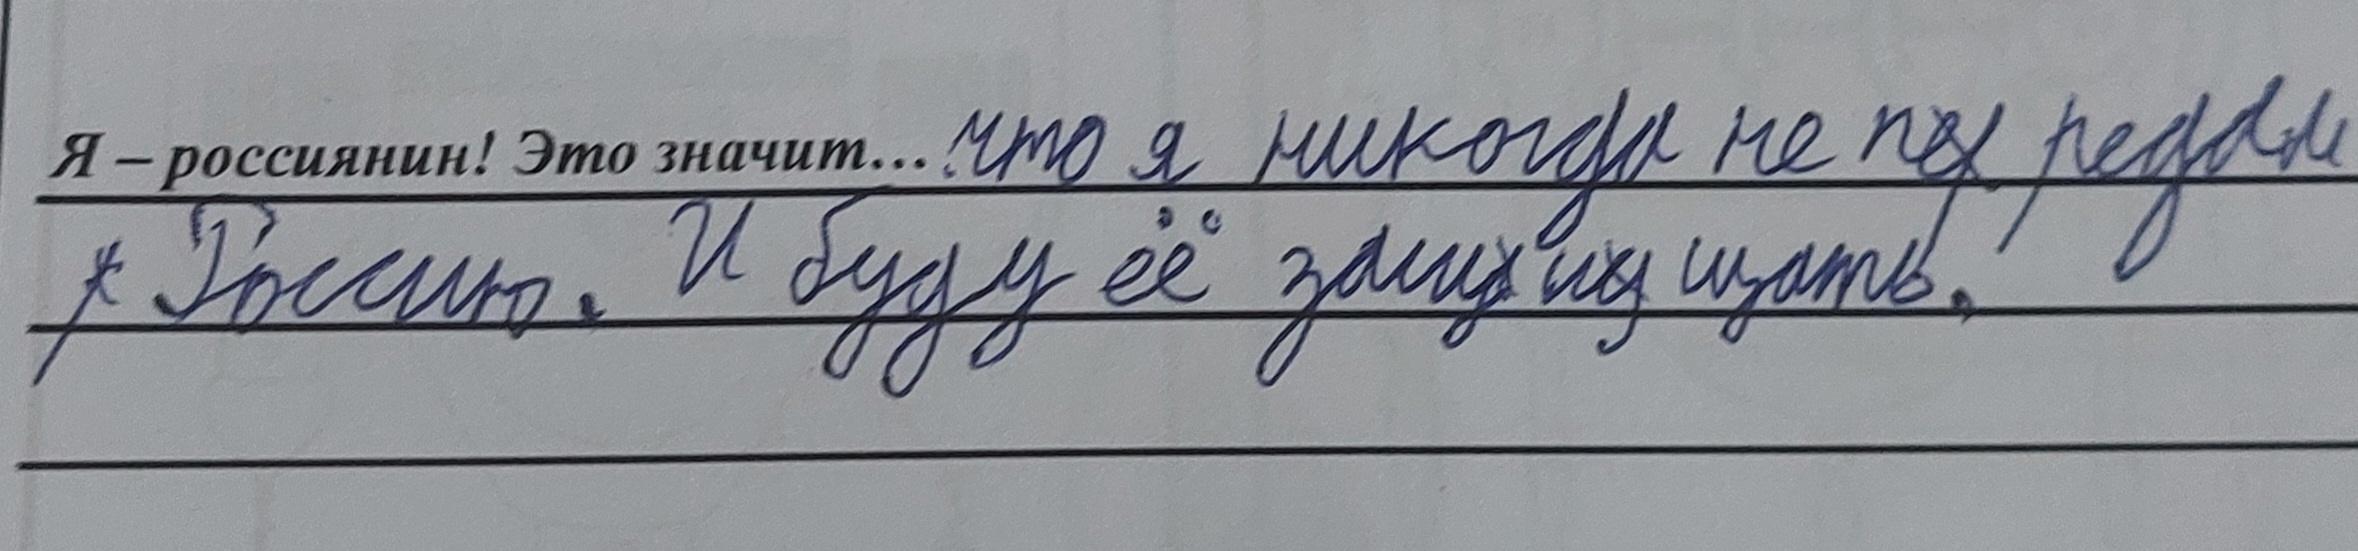 Я – россиянин! Это значит... что я никогда не предам
Россию. И буду её защищать.